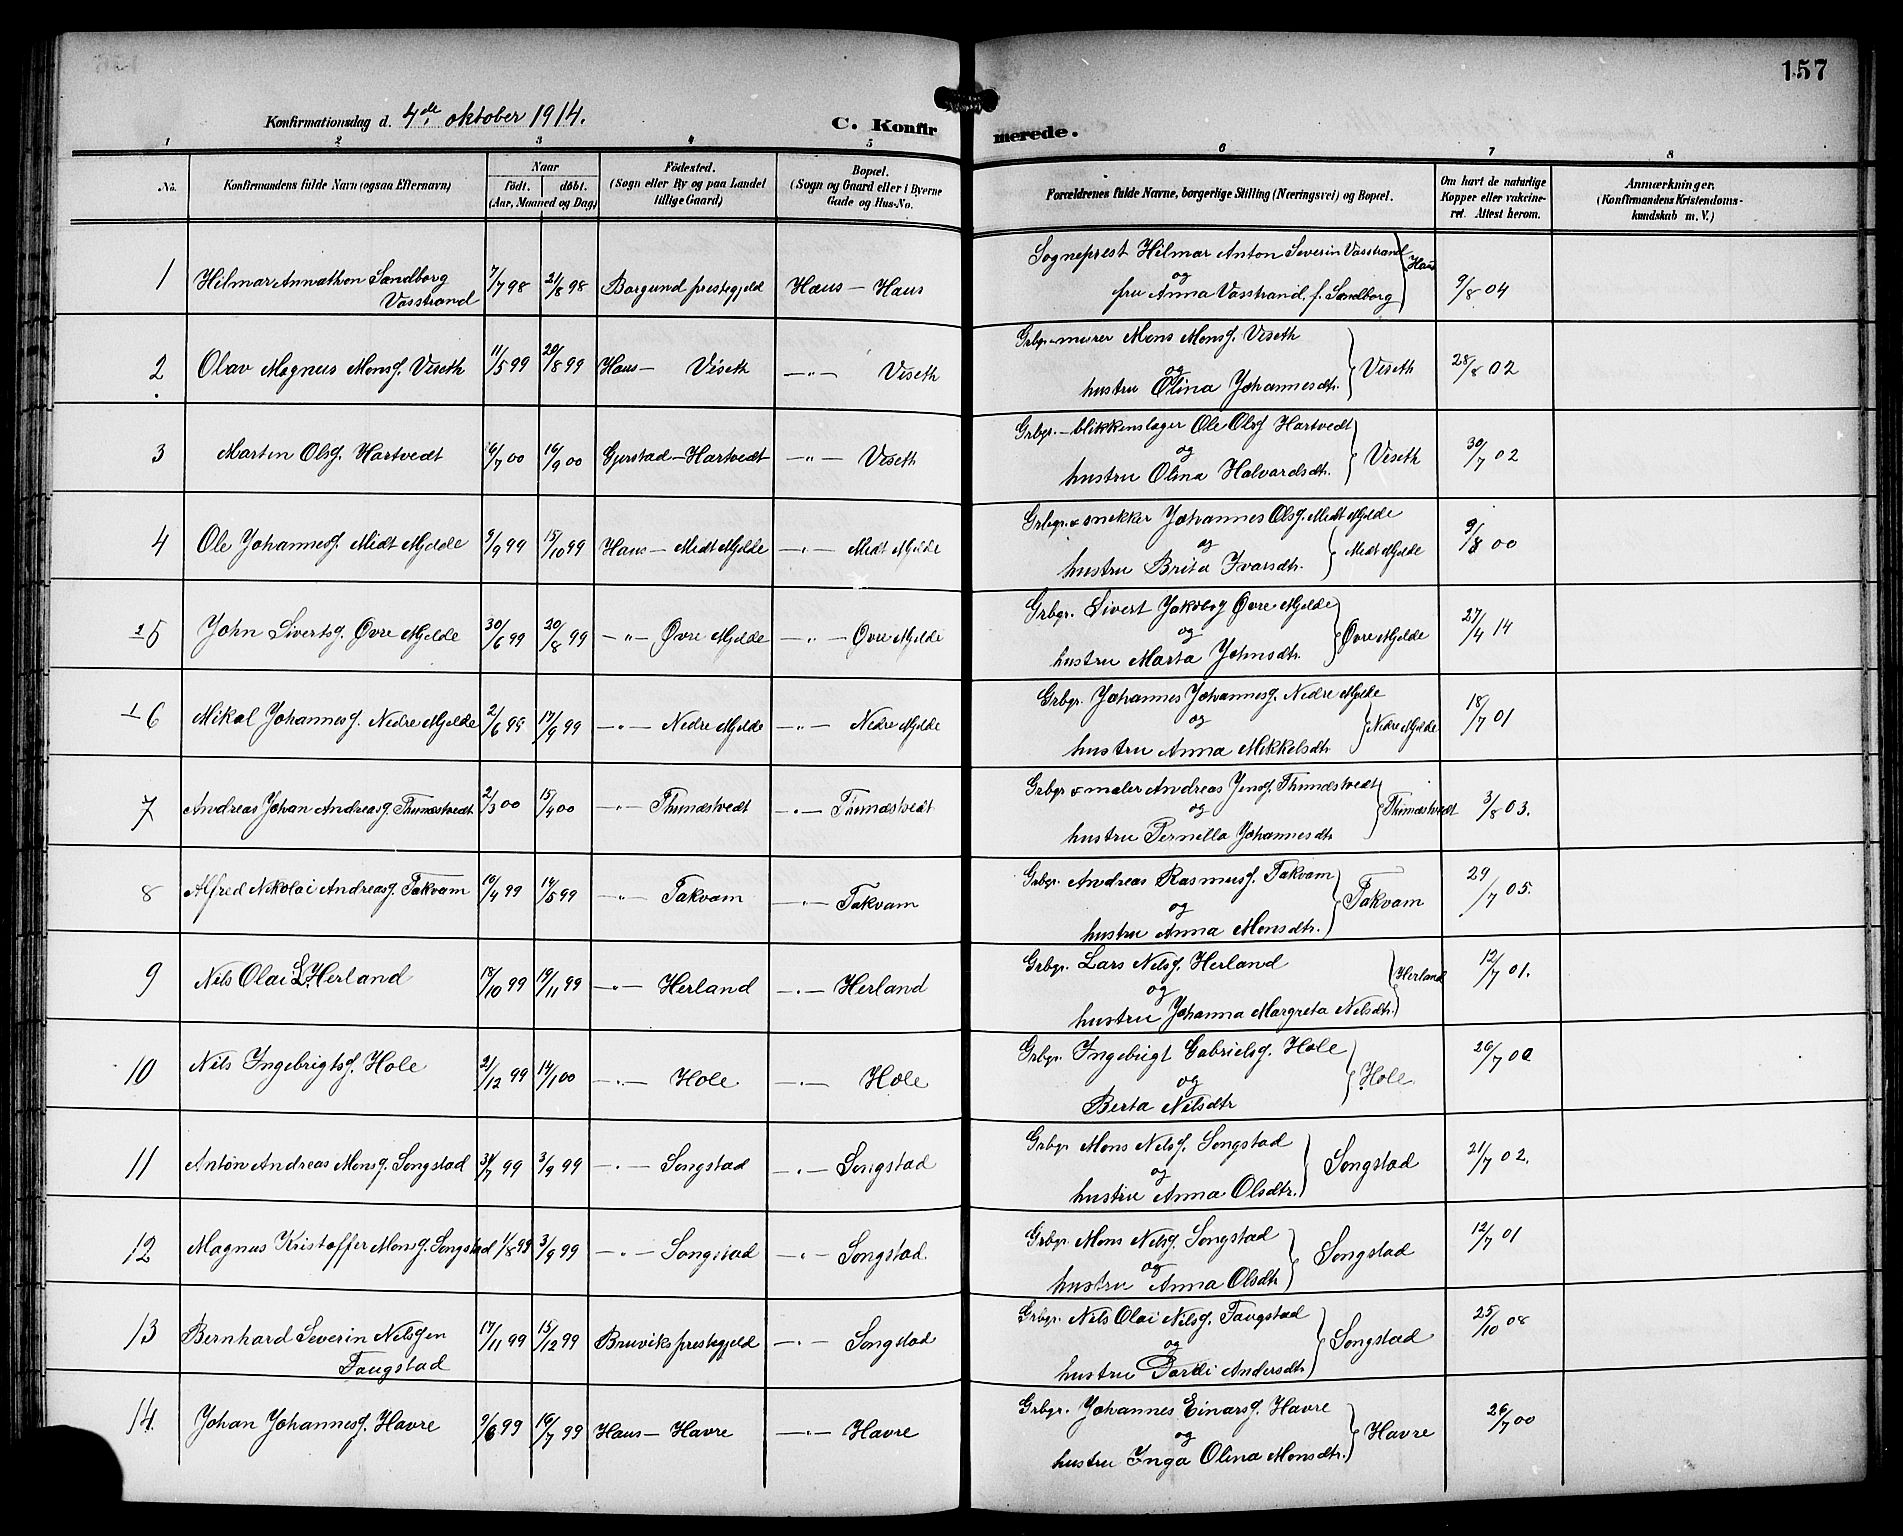 157
Konfirmationsdag d. 4de oktober 1914.
C. Konfirmerede.
1 2 3 4 5 6 7 8
No.
Konfirmandens fulde Navn (ogsaa Efternavn)
Naar
födt. döbt.
(Aar, Maaned og Dag)
Födested.
(Sogn eller By og paa Landet
tillige Gaard)
Bopæl.
(Sogn og Gaard eller i Byerne
Gade og Hus-No.
Forældrenes fulde Navne, borgerlige Stilling (Næringsvei) og Bopæl.
Om havt de naturlige
Kopper eller vakcine-
ret. Attest herom.
Anmærkninger.
(Konfirmandens Kristendoms-
kundskab m. V.)
1 Hilmar Annathon Sandborg 7/7 98 21/8 98 Borgund prestegjeld Haus — Haus
Vasstrand
Sogneprest Hilmar Anton Severin Vasstrand
og Haus 9/8 04
fru Anna Vasstrand, f. Sandborg
2 Olav Magnus Monsg. Viseth 11/5 99 20/8 99 Haus — Viseth —"— Viseth
Grbgr. murer Mons Monsg. Viseth
og Viseth 28/8 02
hustru Olina Johannesdtr.
3 Martin Olsg. Hartvedt 16/7 00 16/9 00 Gjerstad — Hartvedt —"— Viseth
Grbgr. — blikkenslager Ole Olsg Hartvedt
og Viseth 30/7 02
hustru Olina Halvardsdtr.
4 Ole Johannesg. Midt Mjelde 9/9 99 15/10 99 Haus — Midt Mjelde —"— Midt Mjelde
Grbgr. & snekker Johannes Olsg. Midt Mjelde
og Midt Mjelde 9/8 00
hustru Brita Ivarsdtr.
5 John Sivertsg. Øvre Mjelde 30/6 99 20/8 99 —"— Øvre Mjelde —"— Øvre Mjelde
Grbgr. Sivert Jakobsg Øvre Mjelde
og Øvre Mjelde 27/4 14
hustru Marta Johnsdtr.
6 Mikal Johannesg. Nedre Mjelde 2/6 99 17/9 99 —"— Nedre Mjelde —"— Nedre Mjelde
Grbgr. Johannes Johannesg. Nedre Mjelde
og Nedre Mjelde 18/7 01
hustru Anna Mikkelsdtr
7 Andreas Johan Andreasg. Thunæstvedt 2/3 00 15/4 00 —"— Thunæstvedt —"— Thunæstvedt
Grbgr & maler Andreas Jensg. Thunæstvedt
og Thunæstvedt 3/8 03.
hustru Pernella Johannesdtr
8 Alfred Nikolai Andreasg. Takvam 16/4 99 14/5 99 —"— Takvam —"— Takvam
Grbgr. Andreas Rasmusg. Takvam
og Takvam 29/7 05.
hustru Anna Monsdtr.
9 Nils Olai L. Herland 18/10 99 19/11 99 —"— Herland —"— Herland
Grbgr. Lars Nilsg. Herland
og Herland 12/7 01.
hustru Johanna Margreta Nilsdtr.
10 Nils Ingebrigtsg. Hole 21/12 99 14/1 00 —"— Hole —"— Hole
Grbgr. Ingebrigt Gabrielsg. Hole
og Hole 26/7 00
Berta Nilsdtr
11 Anton Andreas Monsg. Songstad 31/7 99 3/9 99 —"— Songstad —"— Songstad
Grbgr Mons Nilsg. Songstad
og Songstad 21/7 02.
hustru Anna Olsdtr.
12 Magnus Kristoffer Monsg. Songstad 1/8 99 3/9 99 —"— Songstad —"— Songstad.
Grbgr. Mons Nilsg. Songstad
og Songstad 12/7 01
hustru Anna Olsdtr
13 Bernhard Severin Nilsgen 17/11 99 15/12 99 Bruviks prestegjeld —"— Songstad
Taugstad
Grbgr. Nils Olai Nilsg. Taugstad
og Songstad 25/10 08
hustru Gardi Andersdtr
14 Johan Johannesg. Havre 9/6 99 16/7 99 Haus — Havre —"— Havre
Grbgr. Johannes Einarsg. Havre
og Havre 26/7 00
hustru Inga Olina Monsdtr.